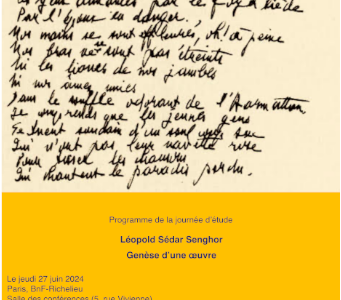 Par l'époux en danger.
Nos mains se sont effleurées, oh! à peine
Nos bras ne se sont pas étreints
Ni les lianes de nos jambes
Ni nos âmes unies
Dans le souffle odorant de l'Harmattan
Je comprends que les jeunes gens
Se tuent soudain d'un seul
Qui n'ont pas leur
Pour
Qui chantent le paradis perdu.
Programme de la journée d'étude
Léopold Sédar Senghor
Genèse d'une œuvre
Le jeudi 27 juin 2024
Paris, BnF-Richelieu
Salle des conférences (5, rue Vivienne)